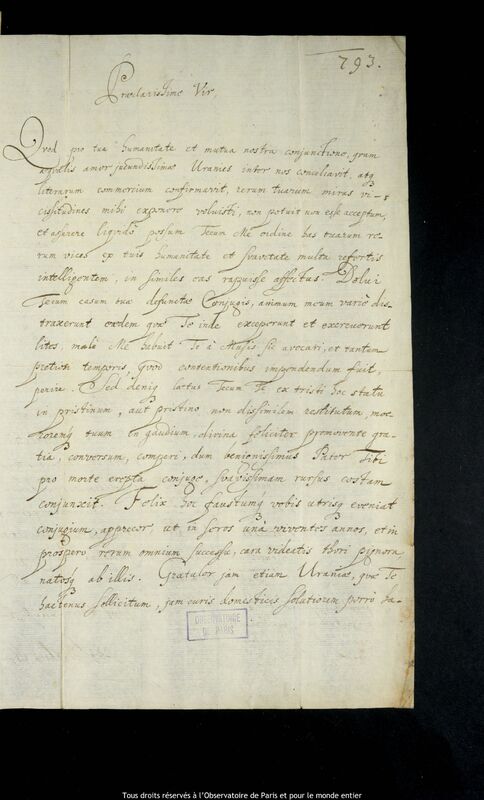 793.
Præclarissime Vir,
Quod pro tua humanitate et mutua nostra conjunctione, quam
æqualis amor jucundissimæ Uranies inter nos conciliavit, atq
literarum commercium confirmavit, rerum tuarum miras vi-
cissitudines mihi exponere voluisti, non potuit non esse acceptum,
et asserere liquidò possum Tecum Me ordine has tuarum re-
rum vices ex tuis humanitate et suavitate multa refertis
intelligentem, in similes eas rapuisse affectus. Dolui
Tecum casum tuæ defunctæ Conjugis, animum meum variè dis-
traxerunt eædem quæ Te inde exceperunt et exercuerunt
lites, malè Me habuit Te à Musis sic avocari, et tantam
pretiosi temporis, quod contentionibus impendendum fuit,
perire. Sed deniq lætus Tecum Te ex tristi hoc statu
in pristinum, aut pristino non dissimilem restitutum, moe-
roremq tuum in gaudium, divina feliciter promovente gra-
tia, conversum, comperi, dum benignissimus Pater Tibi
pro morte erepta conjuge, suavissimam rursus costam
conjunxit. Felix hoc faustumq vobis utrisq eveniat
conjugium, apprecor ut in seros una viventes annos, et in
prospero rerum omnium successu, cara videatis thori pignora
natosq ab illis. Gratulor jam etiam Uraniæ, quæ Te
hactenus sollicitum, jam curis domesticis solutiorem porrò ha-
OBSERVATOIRE
DE PARIS
Tous droits réservés à l'Observatoire de Paris et pour le monde entier